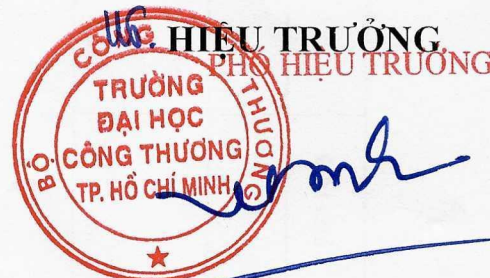 HIỆU TRƯỞNG
PHÓ HIỆU TRƯỞNG
BỘ CÔNG THƯƠNG
TRƯỜNG
ĐẠI HỌC
CÔNG THƯƠNG
TP. HỒ CHÍ MINH